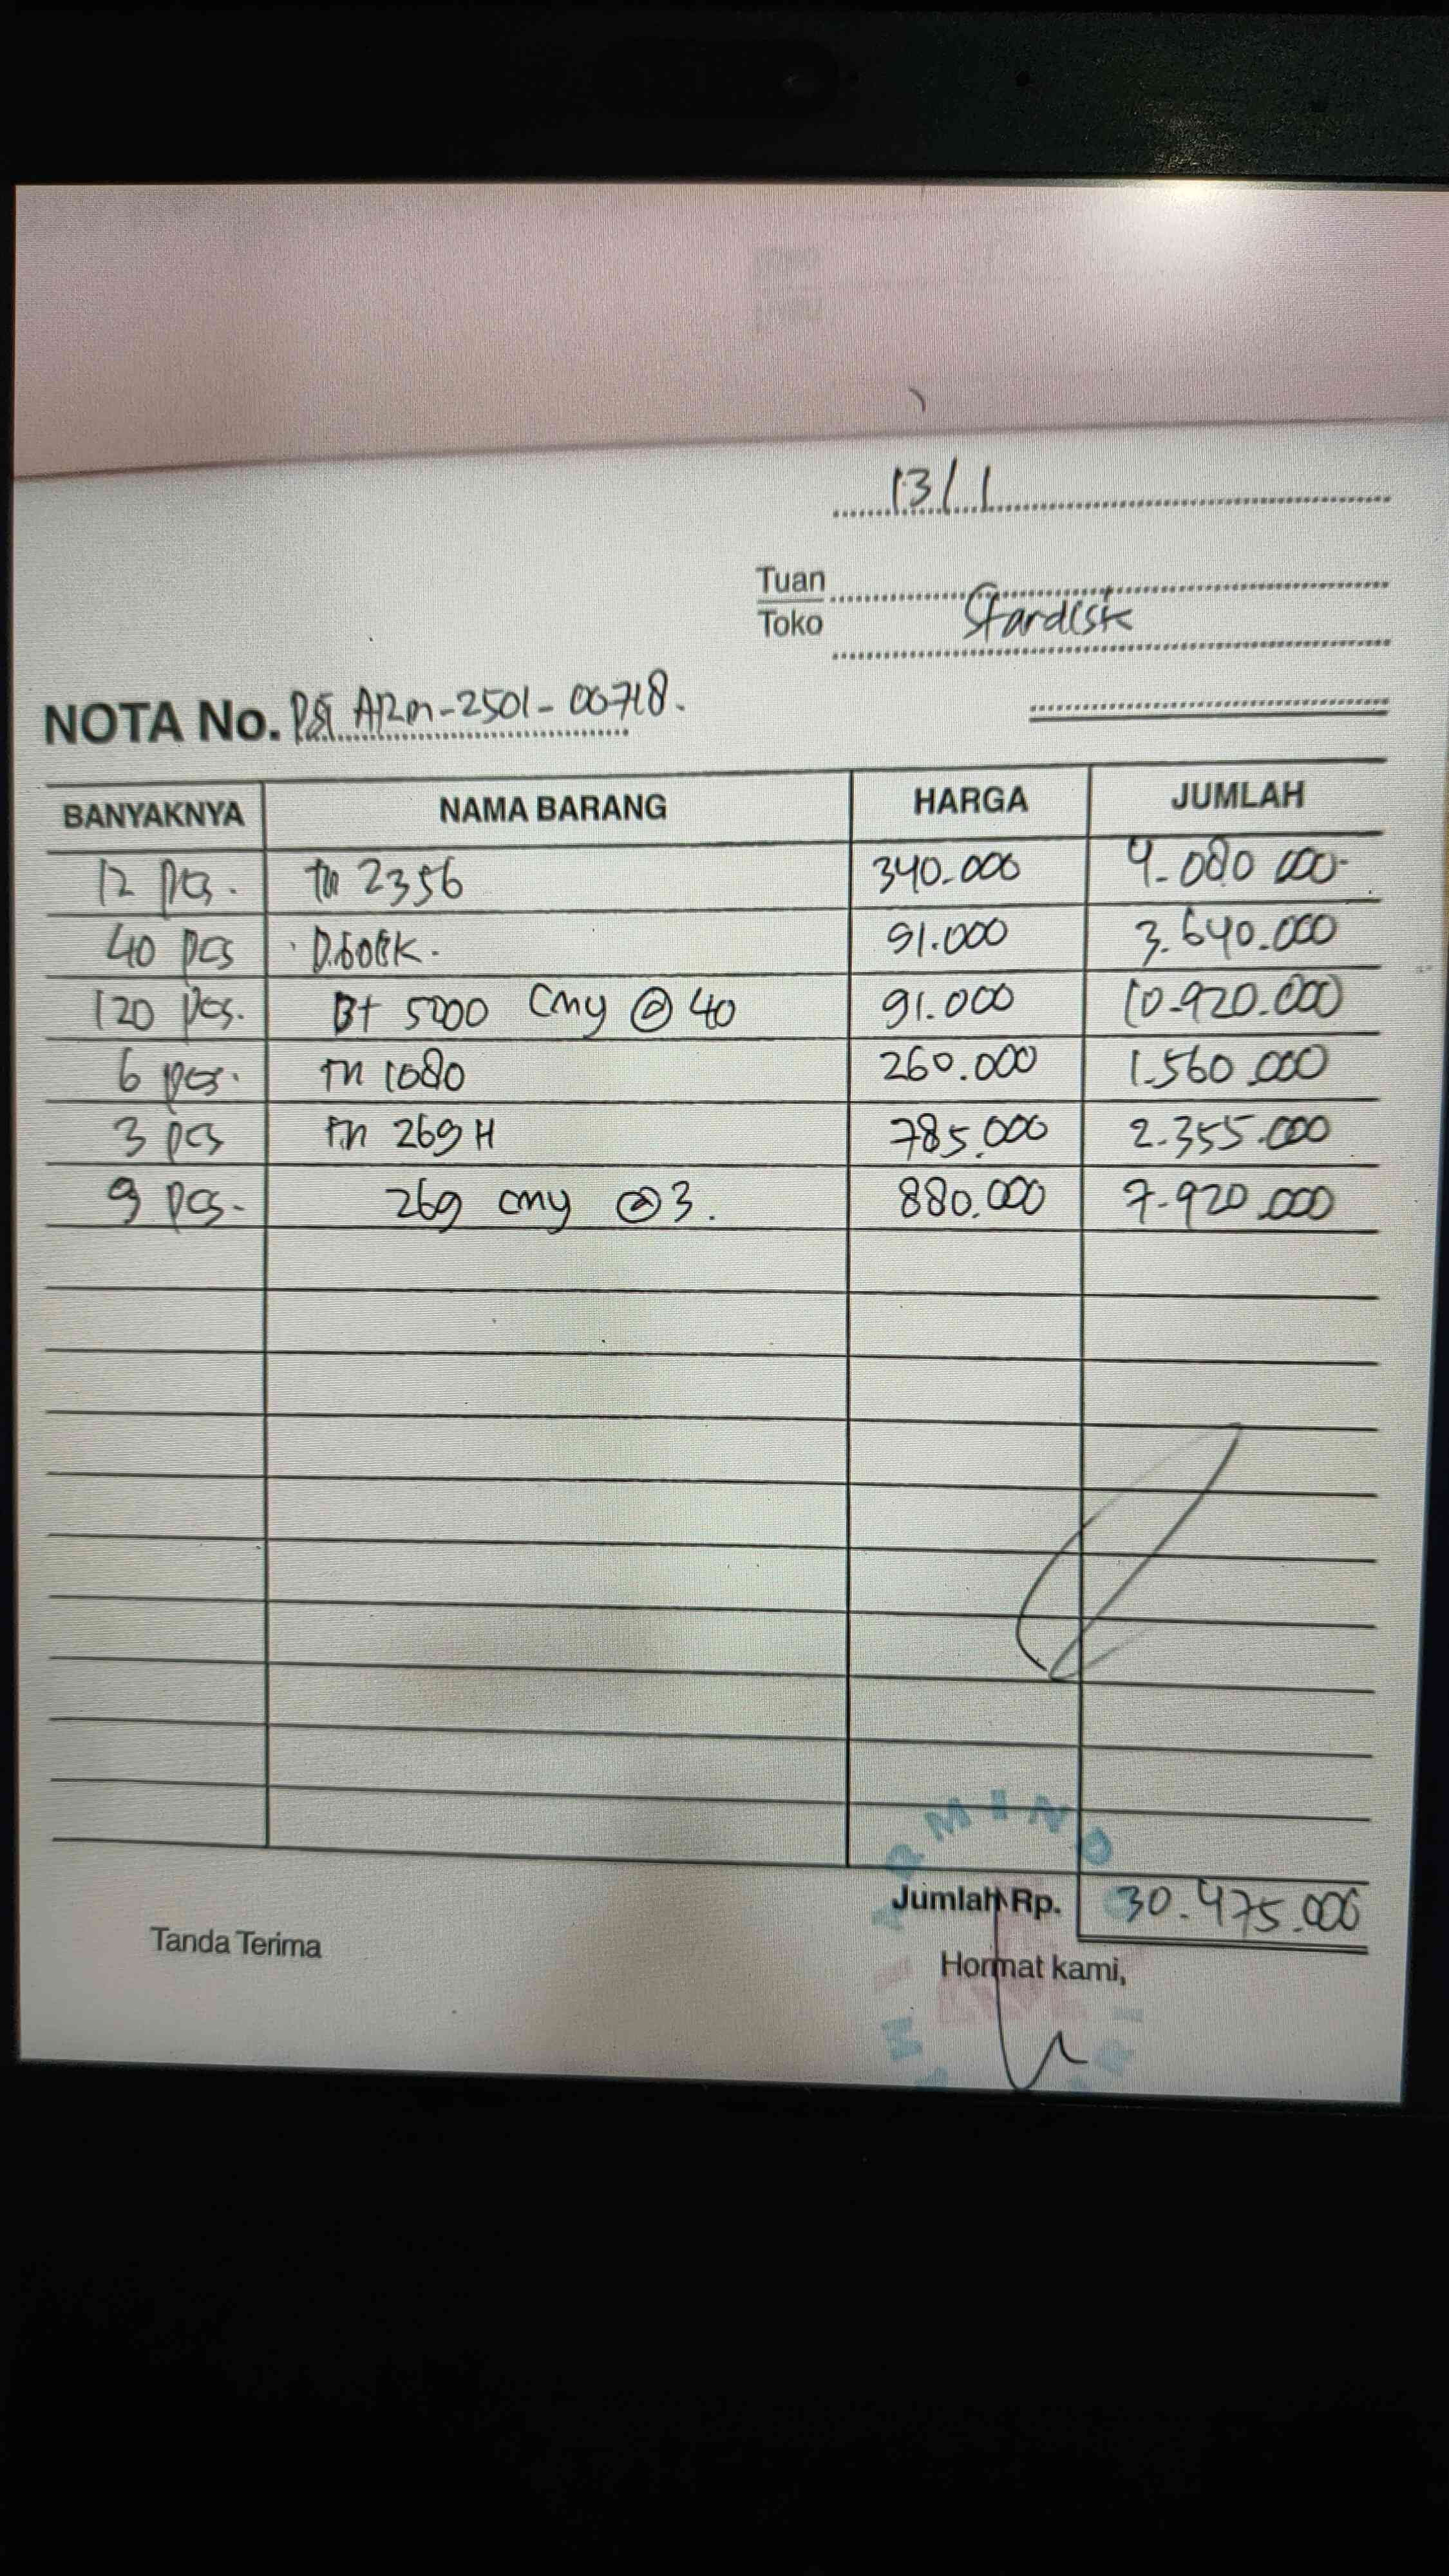 13/1
Tuan
Toko Stardisk
NOTA No. ARM-2501-00718.
BANYAKNYA NAMA BARANG HARGA JUMLAH
12 pcs. tn 2356 340.000 4.080.000
40 pcs 91.000 3.640.000
120 pcs. Bt 5000 Cmy @ 40 91.000 10.920.000
6 pcs. tn 1080 260.000 1.560.000
3 pcs tn 269 H 785.000 2.355.000
9 pcs. 269 cmy @ 3. 880.000 7.920.000
Jumlah Rp. 30.475.000
Tanda Terima
Hormat kami,